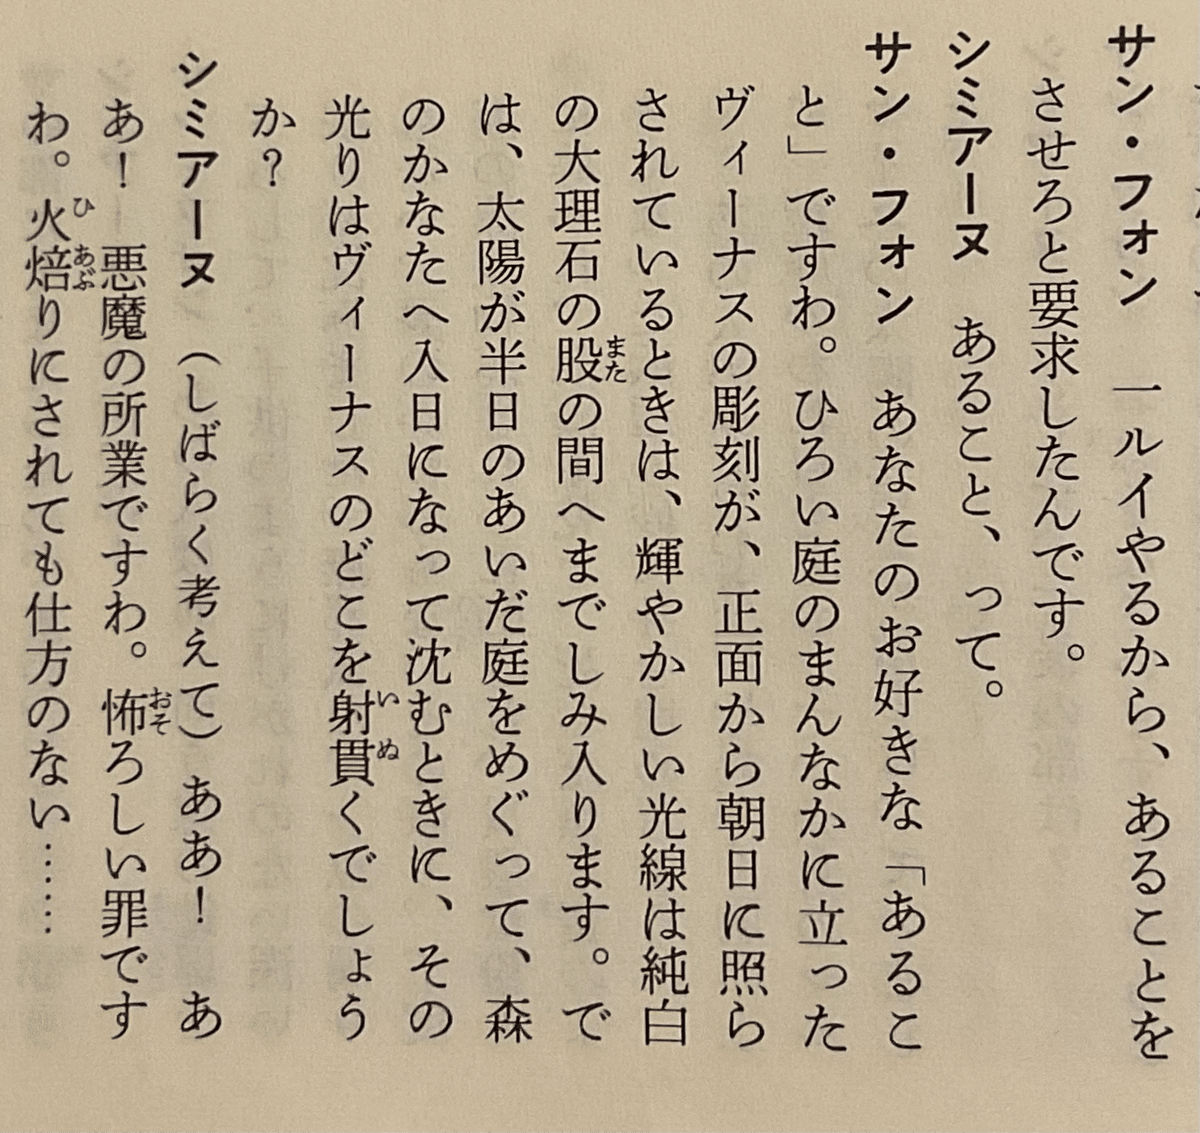 サン・フォン　一ルイやるから、あることを
させろと要求したんです。
シミアーヌ　あること、って。
サン・フォン　あなたのお好きな「あるこ
と」ですわ。ひろい庭のまんなかに立った
ヴィーナスの彫刻が、正面から朝日に照ら
されているときは、輝やかしい光線は純白
の大理石の股の間へまでしみ入ります。で
は、太陽が半日のあいだ庭をめぐって、森
のかなたへ入日になって沈むときに、その
光りはヴィーナスのどこを射貫くでしょう
か？
シミアーヌ（しばらく考えて）ああ！　あ
あ！　悪魔の所業ですわ。怖ろしい罪です
わ。火焙りにされても仕方のない……